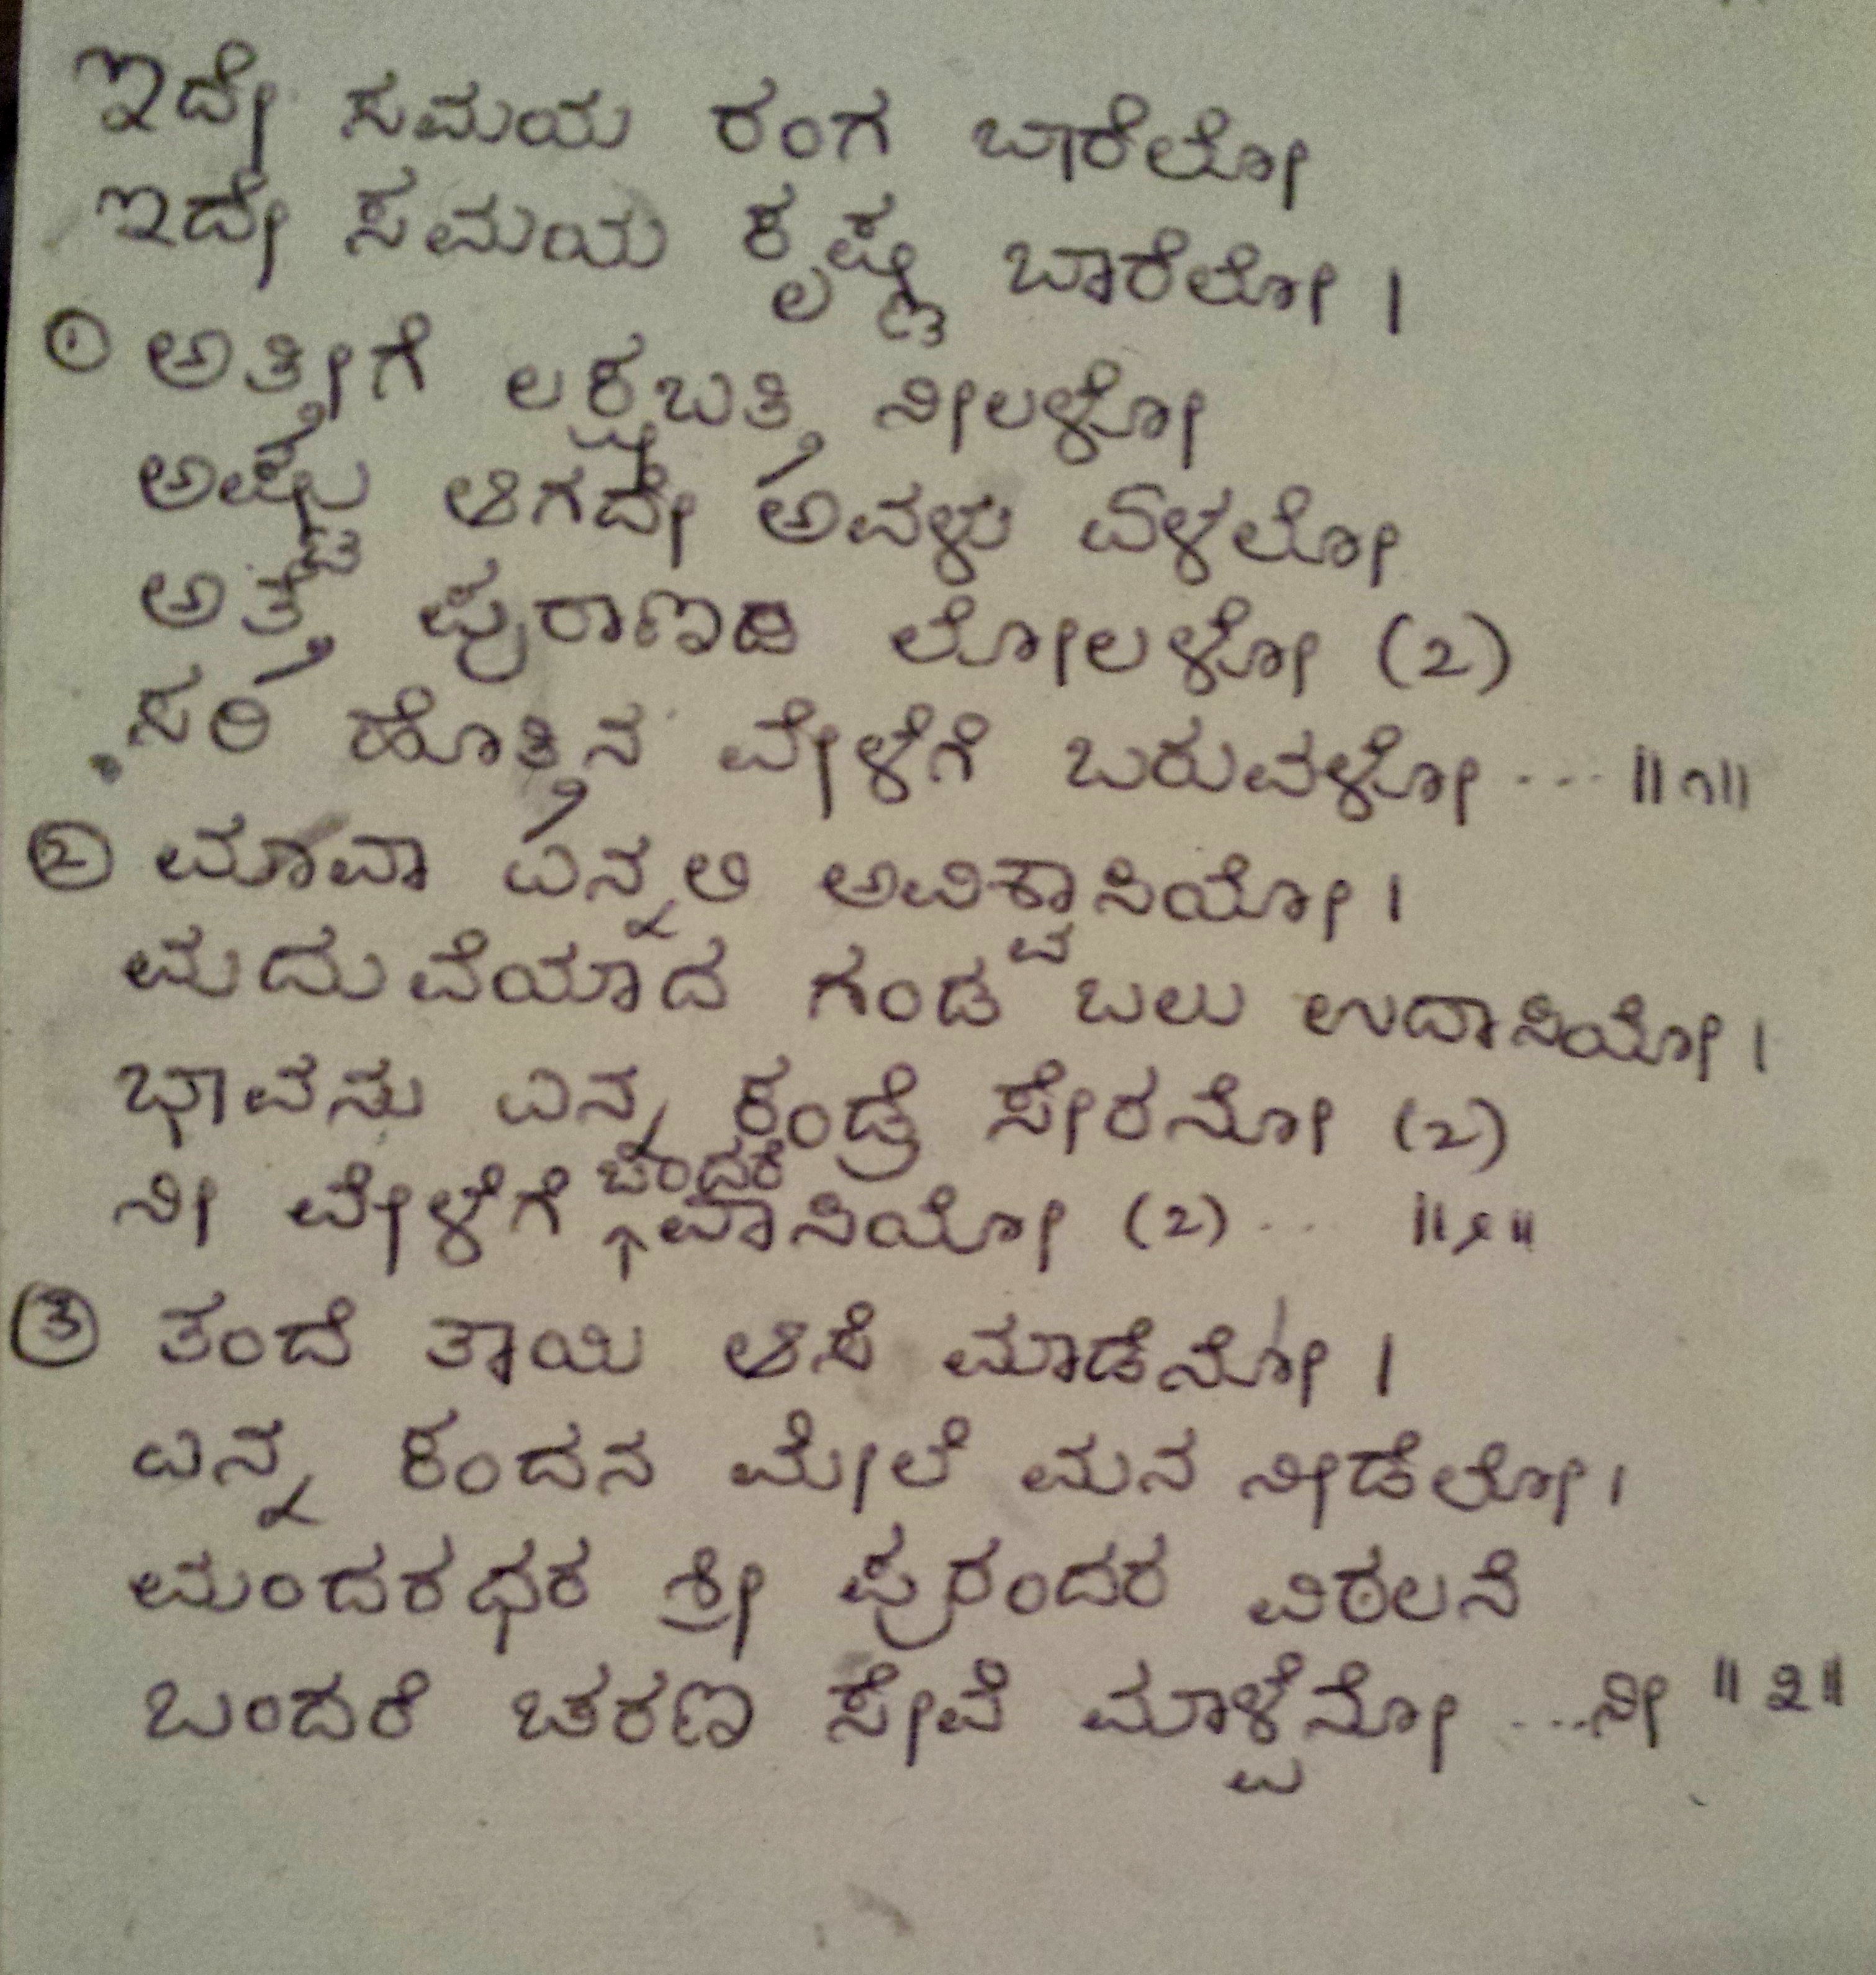 ಇದೇ ಸಮಯ ರಂಗ ಬಾರೆಲೋ
ಇದೇ ಸಮಯ ಕೃಷ್ಣ ಬಾರೆಲೋ ।
① ಅತ್ತಿಗೆ ಲಕ್ಷಬತ್ತಿ ನೀಲಳೋ
ಅಷ್ಟು ಆಗದೇ ಅವಳು ಏಳಲೋ
ಅತ್ತೆ ಪುರಾಣದಿ ಲೋಲಳೋ (2)
ಸರಿ ಹೊತ್ತಿನ ವೇಳೆಗೆ ಬರುವಳೋ ... ॥೧॥
② ಮಾವಾ ಎನ್ನಲಿ ಅವಿಶ್ವಾಸಿಯೋ ।
ಮದುವೆಯಾದ ಗಂಡ ಬಲು ಉದಾಸಿಯೋ ।
ಭಾವನು ಎನ್ನ ಕಂಡ್ರೆ ಸೇರನೋ (2)
ನೀ ವೇಳೆಗೆ ಬಂದರೆ ವಾಸಿಯೋ (2) ... ॥೨॥
③ ತಂದೆ ತಾಯಿ ಆಸೆ ಮಾಡೆನೋ ।
ಎನ್ನ ಕಂದನ ಮೇಲೆ ಮನ ನೀಡೆಲೋ ।
ಮಂದರಧರ ಶ್ರೀ ಪುರಂದರ ವಿಠಲನೆ
ಬಂದರೆ ಚರಣ ಸೇವೆ ಮಾಳ್ಪೆನೋ ... ನೀ ॥೨॥